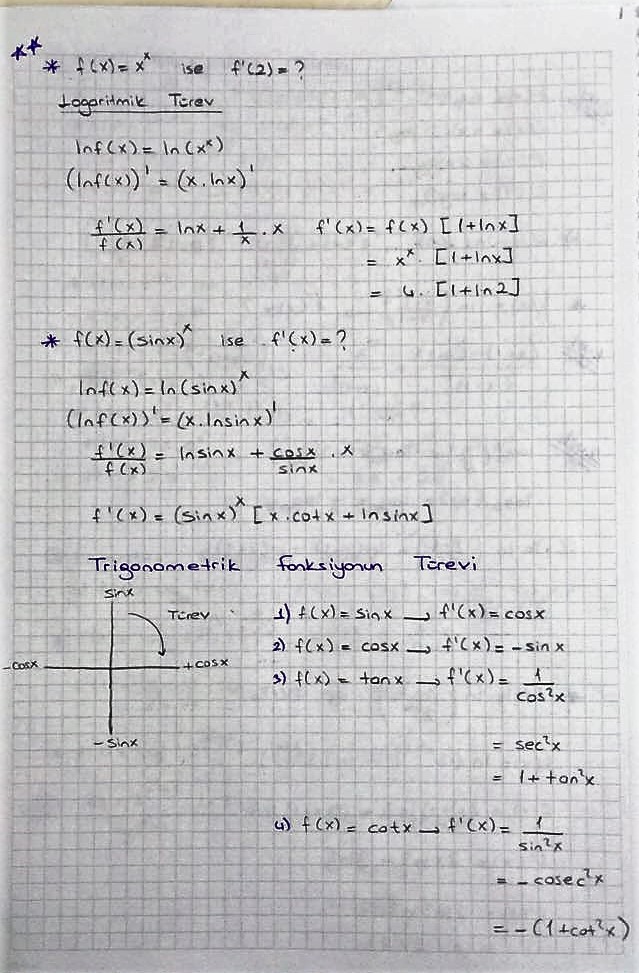 ** 
* f(x) = x^x ise f'(2) = ?
Logaritmik Türev
lnf(x) = ln(x^x)
(lnf(x))' = (x.lnx)'
f'(x)/f(x) = lnx + 1/x . x
f'(x) = f(x) [1+lnx]
= x^x. [1+lnx]
= 4. [1+ln2]
* f(x) = (sinx)^x ise f'(x) = ?
lnf(x) = ln(sinx)^x
(lnf(x))' = (x.lnsinx)'
f'(x)/f(x) = lnsinx + cosx/sinx . x
f'(x) = (sinx)^x [x.cotx + lnsinx]
Trigonometrik Fonksiyonun Türevi
sinx
Türev
-cosx
+cosx
-sinx
1) f(x) = sinx → f'(x) = cosx
2) f(x) = cosx → f'(x) = -sinx
3) f(x) = tanx → f'(x) = 1/cos²x
= sec²x
= 1+tan²x
4) f(x) = cotx → f'(x) = 1/sin²x
= -cosec²x
= -(1+cot²x)